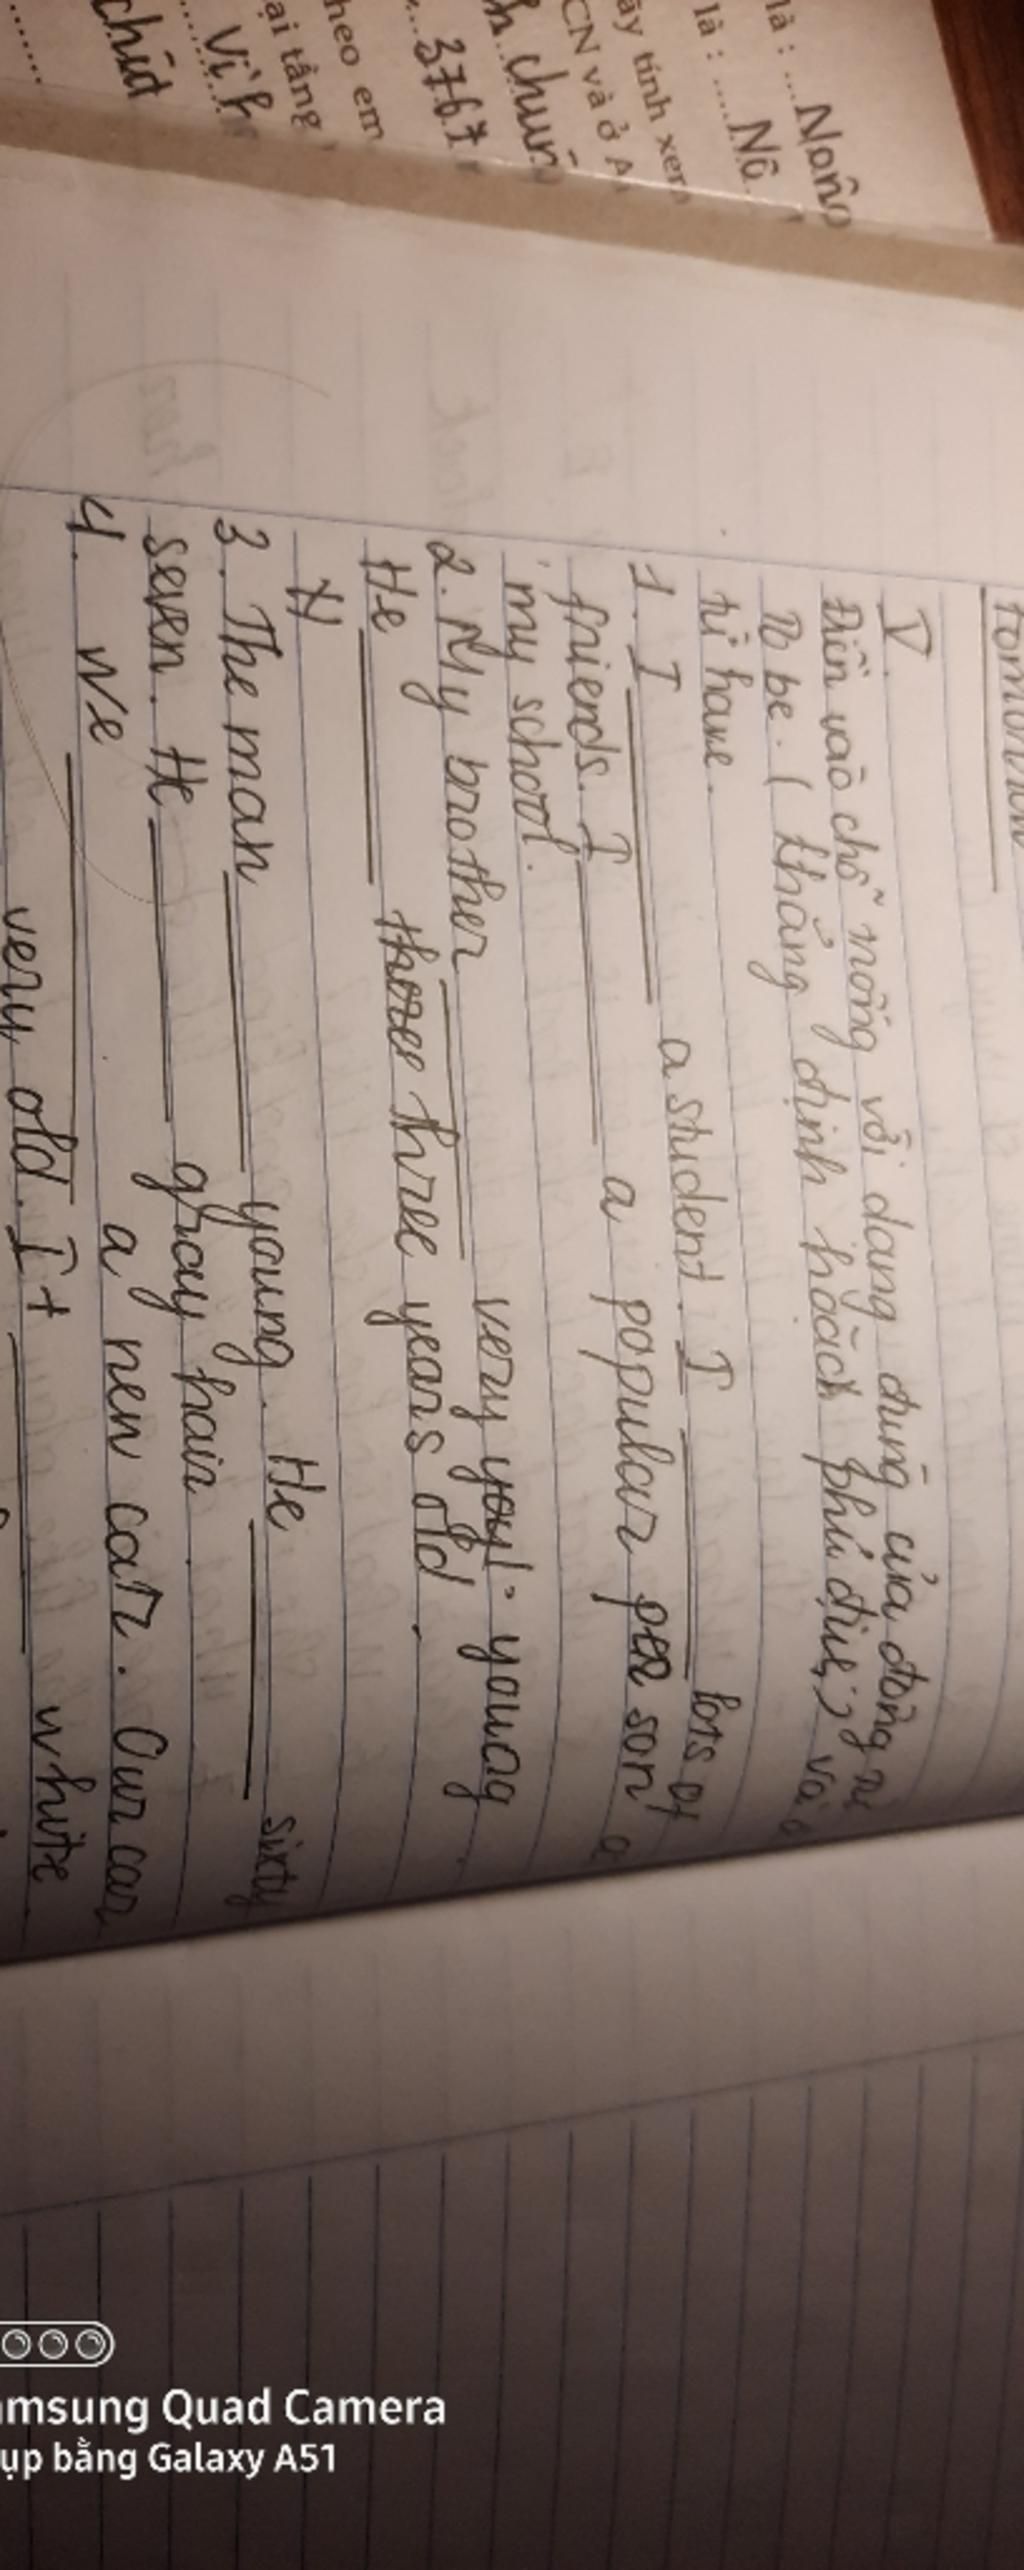 là : ....Nông
là : .....Nô
ây tính xem
CN và ở A
h chún
....3767
heo em
ại tầng
.......Vì h
chút
V.
Điền vào chỗ trống với dạng đúng của động từ
To be. ( khẳng định hoặch phủ định) và
từ have.
1. I ________ a student. I ________ lots of
friends. I ________ a popular person
my school.
2. My brother ________ very you! - young
He ________ three years old.
H
3. The man ________ young. He ________ sixty
seven. He ________ gray hair
4. We ________ a new car. Our car
________ very old. It ________ white
amsung Quad Camera
ụp bằng Galaxy A51